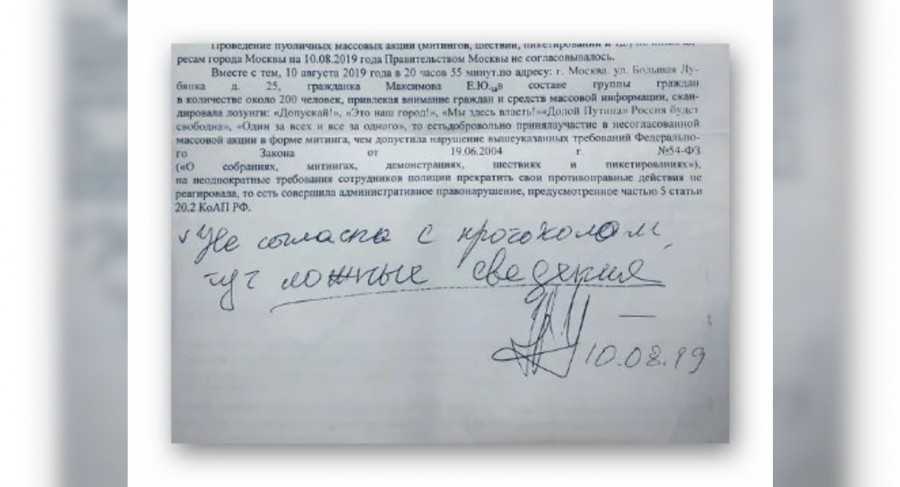 Проведение публичных массовых акций (митингов, шествий, пикетирований и
ресам города Москвы на 10.08.2019 года Правительством Москвы не согласовывалось.
Вместе с тем, 10 августа 2019 года в 20 часов 55 минут.по адресу: г. Москва. ул. Большая Лу-
бянка д. 25, гражданка Максимова Е.Ю. в составе группы граждан
в количестве около 200 человек, привлекая внимание граждан и средств массовой информации, скан-
дировала лозунги: «Допускай!», «Это наш город!», «Мы здесь власть!»«Долой Путина» Россия будет
свободна», «Один за всех и все за одного», то естьдобровольно принялаучастие в несогласованной
массовой акции в форме митинга, чем допустила нарушение вышеуказанных требований Федерально-
го Закона от 19.06.2004 г. №54-ФЗ
(«О собраниях, митингах, демонстрациях, шествиях и пикетированиях»),
на неоднократные требования сотрудников полиции прекратить свои противоправные действия не
реагировала, то есть совершила административное правонарушение, предусмотренное частью 5 статьи
20.2 КоАП РФ.
Не согласна с протоколом,
тут ложные сведения
10.08.19